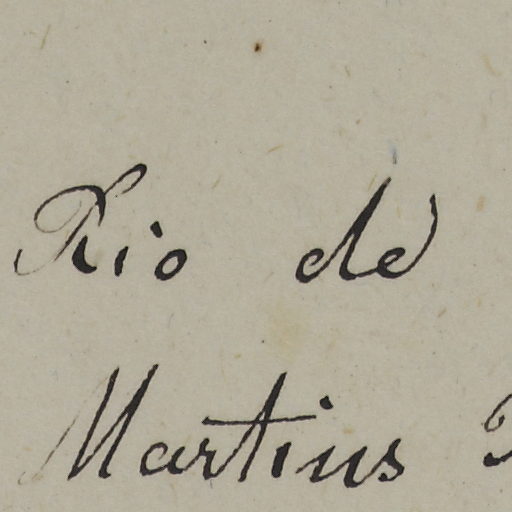 Rio de
Martius